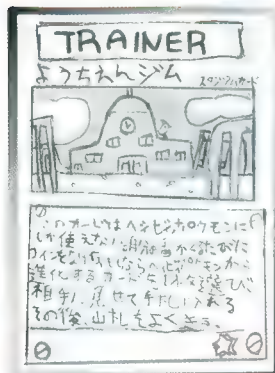 TRAINER
ようちえんジム
スタジアムカード
このカードはベビィポケモンに
しか使えない 自分の番がくるたびに
コインをなげオモテならベビィポケモンから
進化するカードを1まい選び
相手に見せて手札に入れる
その後、山札をよくきる。